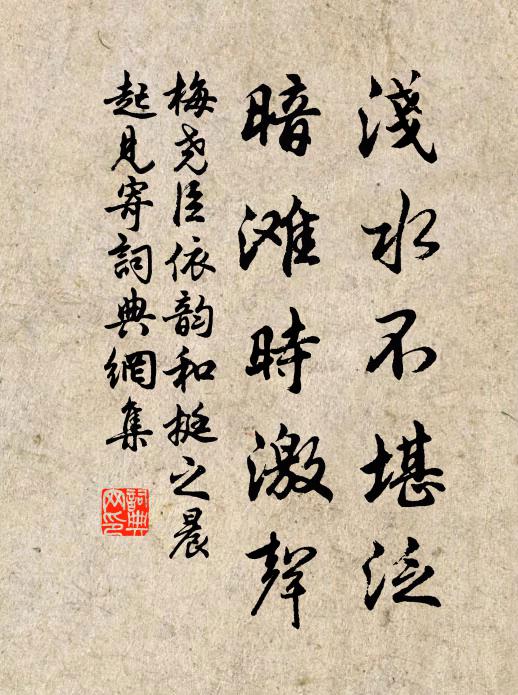 淺水不堪泛
暗滩時激聲
梅尧臣依韵和挺之晨
起見寄詞典網集
詞典
网印